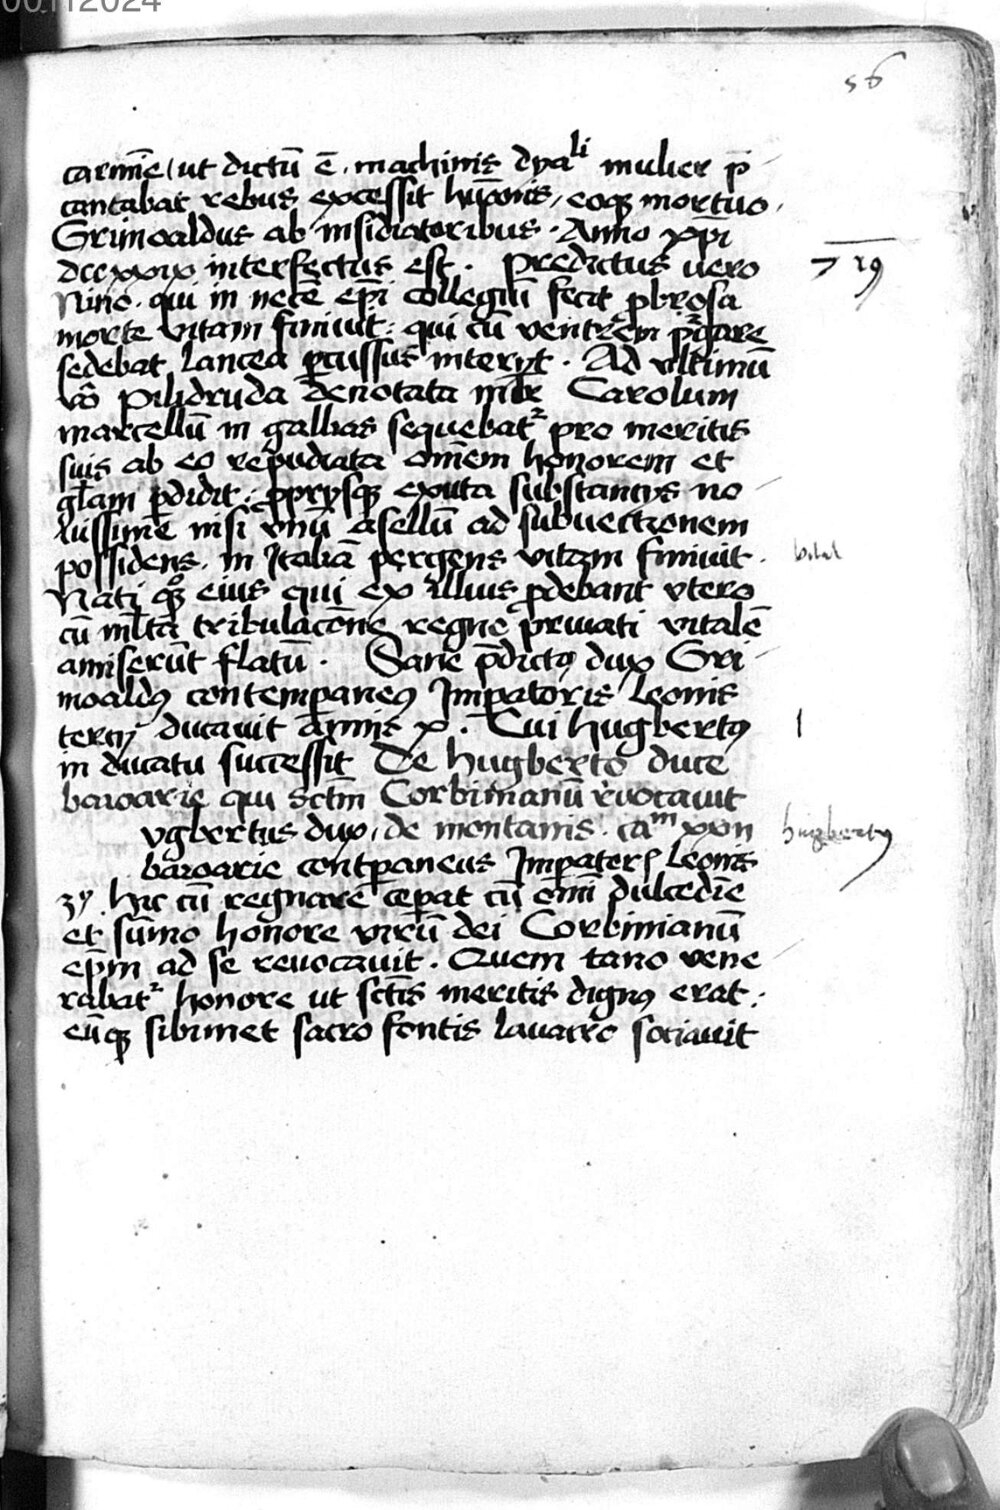 00112024
56
carmīe ut dictū ē machinis dyaˡⁱ mulier p̄
cantabat rebus excessit hūanis, eoqꝫ mortuo,
Grimoaldus ab insidiatoribus. Anno xp̄i
dccxxix interfectus est. Predictus uero
Nino qui in necē ep̄i collegiū fecit ꝓbrosa
morte vitam finiuit: qui cū ventrem
sedebat Lancea ꝑcussus interijt. Ad vltimū
v̄o Pilidruda denotata mlr̄ Carolum
marcellū in gallias sequebat᷑ pro meritis
suis ab eo repudiata om̄em honorem et
gl̄am ꝑdidit: ꝓprijsqꝫ exuta substantijs no
uissime nisi vnū asellū ad subuectionem
possidens, in Italiā pergens vitam finiuit.
Nati qꝫ eius qui ex illius ꝓdebant vtero
cū ml̄ta tribulac̄one regno priuati vitalē
amiserūt flatū. Sane p̄dictꝰ dux Gri
moaldꝰ contemporaneꝰ Impatoris Leonis
tercij ducauit annis x. Cui Hugbertꝰ
in ducatu successit De Hugberto duce
baioarie qui sctm̄ Corbinianū reuocauit
vgbertus dux, de montanis
baioarie contꝑaneus Impator Leonis
3ij. hic cū regnare cepat cū om̄i dulcedīe
et sūmo honore virū dei Corbinianū
ep̄m ad se reuocauit. Quem tanto vene
rabat᷑ honore ut sctīs meritis dignꝰ erat:
eūqꝫ sibimet sacro fontis lauacro sociauit
hugbertꝰ